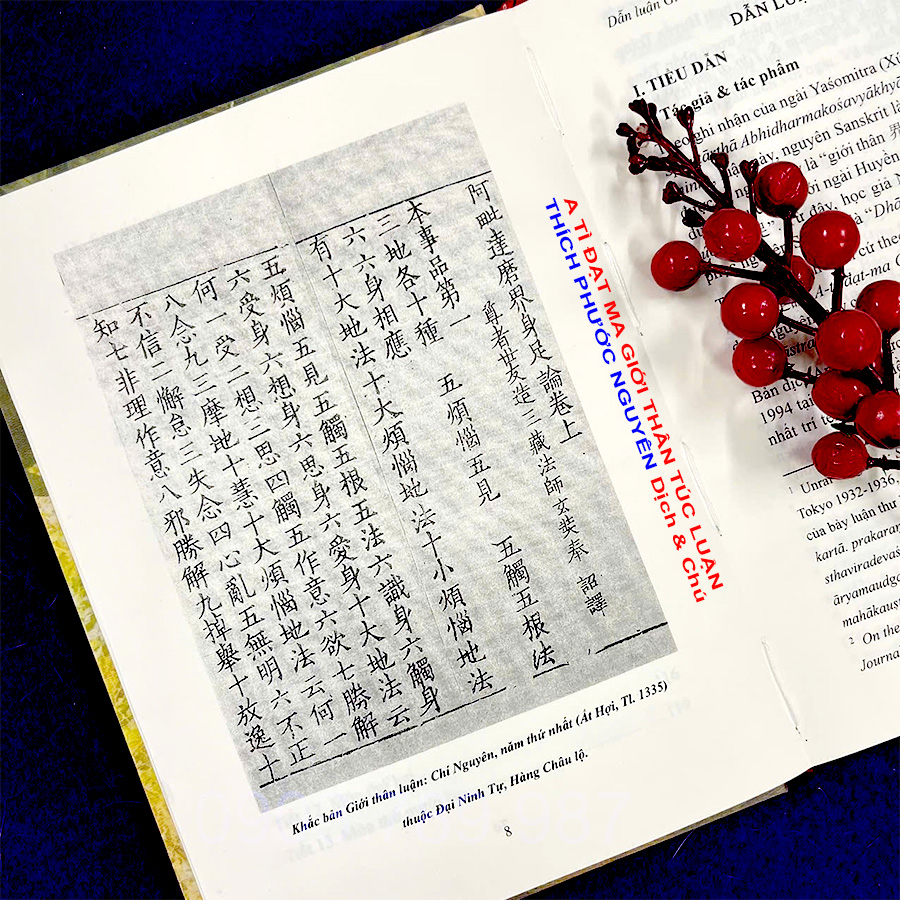 阿毗達磨界身足論卷上
尊者世友造 三藏法師玄奘奉 詔譯
本事品第一
三地各十種 五煩惱五見 五觸五根法
六六身相應
有十大地法十大煩惱地法十小煩惱地法
五煩惱五見五觸五根五法六識身六觸身
六受身六想身六思身六愛身十大地法云
何一受二想三思四觸五作意六欲七勝解
八念九三摩地十慧十大煩惱地法云何一
不信二懈怠三失念四心亂五無明六不正
知七非理作意八邪勝解九掉舉十放逸十
Khắc bản Giới thân luận: Chí Nguyên, năm thứ nhất (Ất Hợi, Tl. 1335)
thuộc Đại Ninh Tự, Hàng Châu lộ.
8
A TÌ ĐẠT MA GIỚI THÂN TÚC LUẬN
THÍCH PHƯỚC NGUYÊN Dịch & Chú
Dẫn luận
DẪN
I. TIỂU DẪN
Tác giả & tác phẩm
ghi nhận của ngài Yaśomitra
Abhidharmakośavyākhyā
này, nguyên Sanskrit là
là “giới thân 界
ngài Huyền
đây, học giả
là “Dhā
cứ theo
A-tì-đạt-ma
Bản dịch
1994 tại
nhất trí
1 Unrai
Tokyo 1932-1936,
của bảy luận thư
kartā. prakaran
sthaviradevaś
āryamaudga
mahākauṣṭ
2 On the
Journal